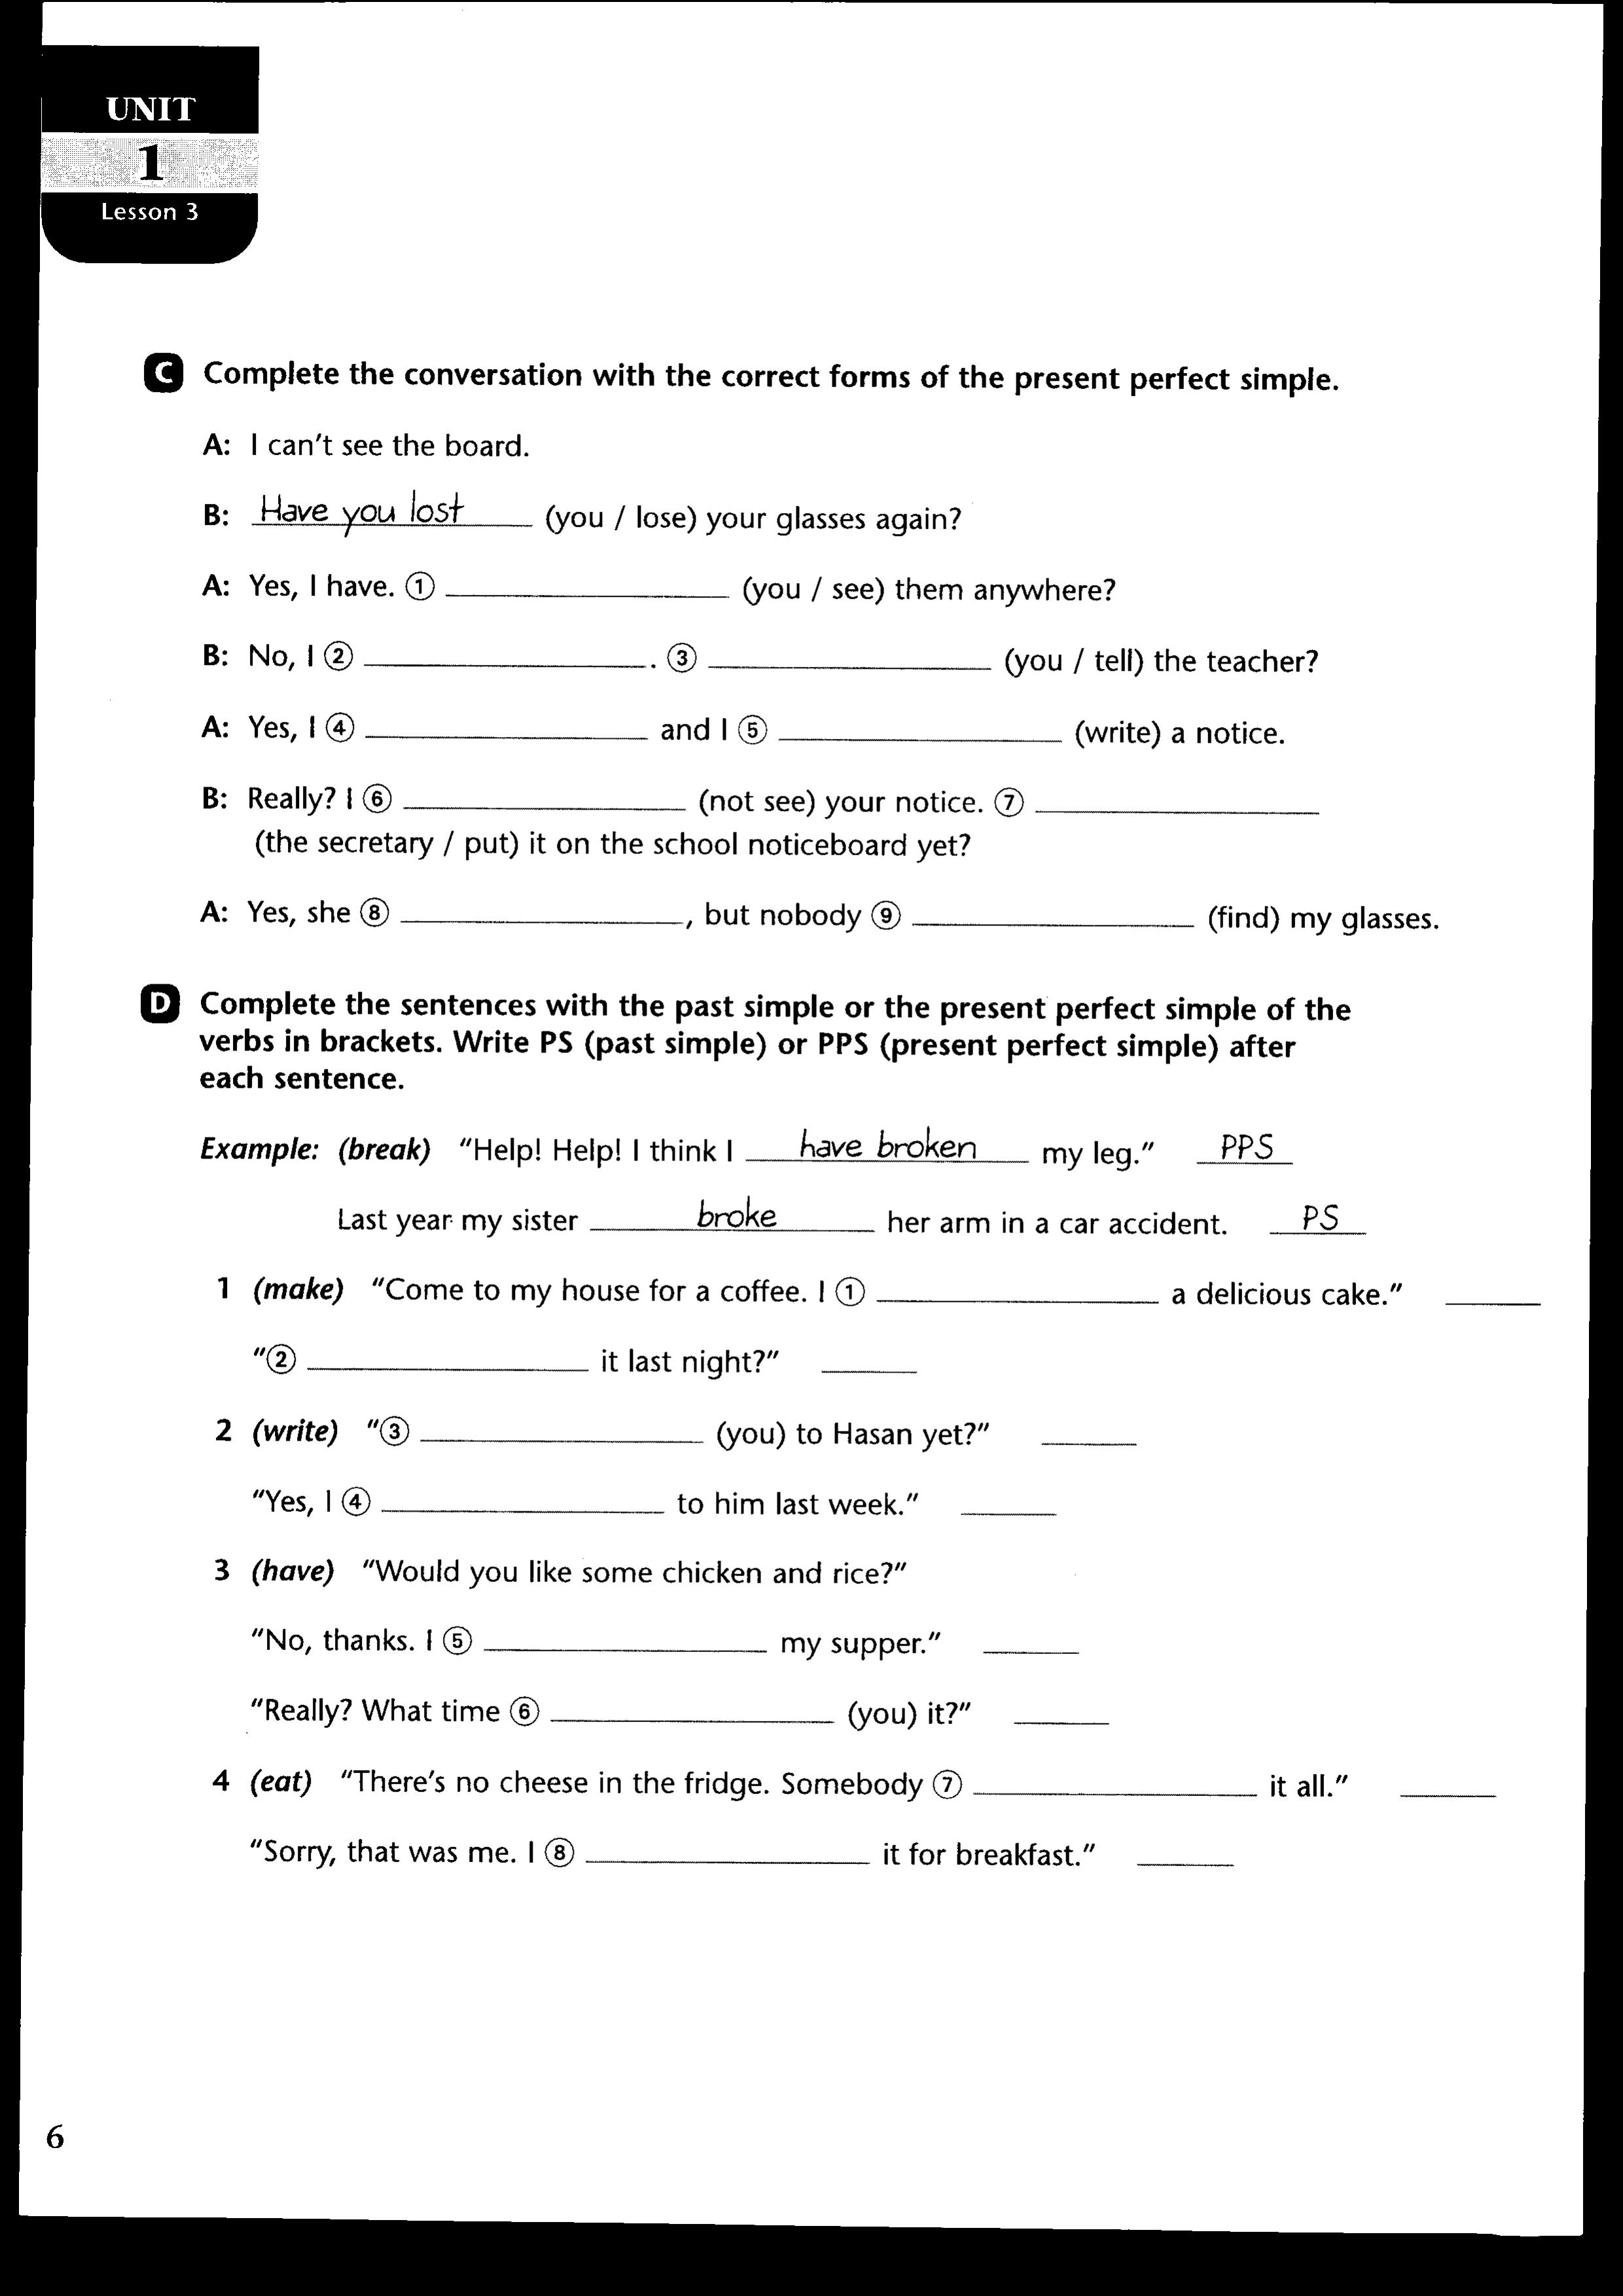 UNIT
1
Lesson 3
C Complete the conversation with the correct forms of the present perfect simple.
A: I can't see the board.
B: Have you lost (you / lose) your glasses again?
A: Yes, I have. ① ____________ (you / see) them anywhere?
B: No, I ② ____________. ③ ____________ (you / tell) the teacher?
A: Yes, I ④ ____________ and I ⑤ ____________ (write) a notice.
B: Really? I ⑥ ____________ (not see) your notice. ⑦ ____________
(the secretary / put) it on the school noticeboard yet?
A: Yes, she ⑧ ____________, but nobody ⑨ ____________ (find) my glasses.
D Complete the sentences with the past simple or the present perfect simple of the
verbs in brackets. Write PS (past simple) or PPS (present perfect simple) after
each sentence.
Example: (break) "Help! Help! I think I have broken my leg." PPS
Last year my sister broke her arm in a car accident. PS
1 (make) "Come to my house for a coffee. I ① ____________ a delicious cake." ____
"② ____________ it last night?" ____
2 (write) "③ ____________ (you) to Hasan yet?" ____
"Yes, I ④ ____________ to him last week." ____
3 (have) "Would you like some chicken and rice?"
"No, thanks. I ⑤ ____________ my supper." ____
"Really? What time ⑥ ____________ (you) it?" ____
4 (eat) "There's no cheese in the fridge. Somebody ⑦ ____________ it all." ____
"Sorry, that was me. I ⑧ ____________ it for breakfast." ____
6